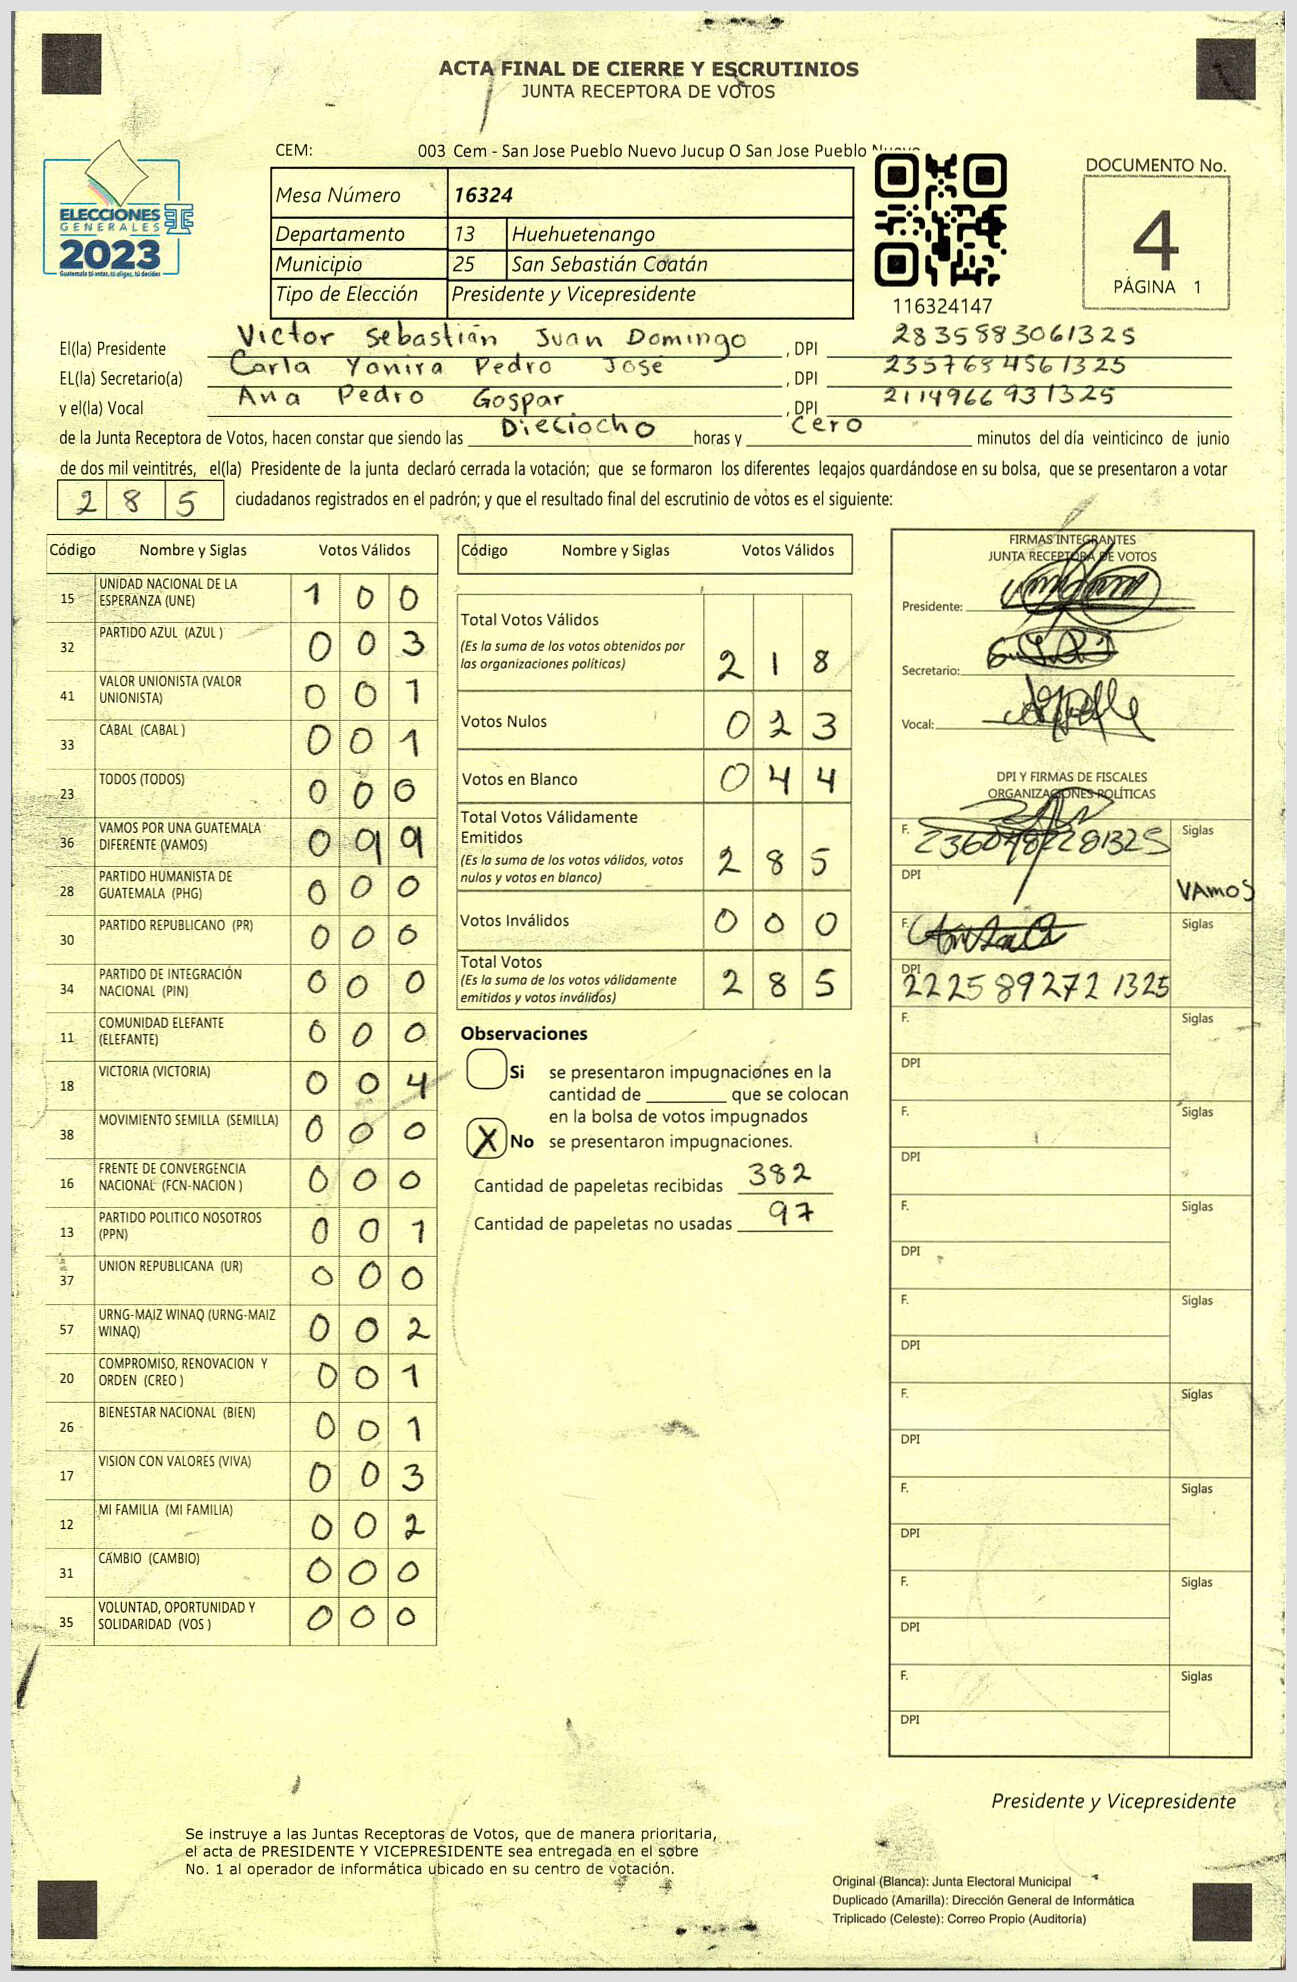 ACTA FINAL DE CIERRE Y ESCRUTINIOS
JUNTA RECEPTORA DE VOTOS
CEM: 003 Cem - San Jose Pueblo Nuevo Jucup O San Jose Pueblo
ELECCIONES
GENERALES
2023
Guatemala tú votas, tú eliges, tú decides
Mesa Número 16324
Departamento 13 Huehuetenango
Municipio 25 San Sebastián Coatán
Tipo de Elección Presidente y Vicepresidente
116324147
DOCUMENTO No.
4
PÁGINA 1
El(la) Presidente Victor Sebastián Juan Domingo , DPI 2835883061325
EL(la) Secretario(a) Carla Yanira Pedro José , DPI 2357684561325
y el(la) Vocal Ana Pedro Gaspar , DPI 2114966931325
de la Junta Receptora de Votos, hacen constar que siendo las Dieciocho horas y Cero minutos del día veinticinco de junio
de dos mil veintitrés, el(la) Presidente de la junta declaró cerrada la votación; que se formaron los diferentes legajos guardándose en su bolsa, que se presentaron a votar
285 ciudadanos registrados en el padrón; y que el resultado final del escrutinio de votos es el siguiente:
Código Nombre y Siglas Votos Válidos
15 UNIDAD NACIONAL DE LA ESPERANZA (UNE) 1 0 0
32 PARTIDO AZUL (AZUL ) 0 0 3
41 VALOR UNIONISTA (VALOR UNIONISTA) 0 0 1
33 CABAL (CABAL ) 0 0 1
23 TODOS (TODOS) 0 0 0
36 VAMOS POR UNA GUATEMALA DIFERENTE (VAMOS) 0 9 9
28 PARTIDO HUMANISTA DE GUATEMALA (PHG) 0 0 0
30 PARTIDO REPUBLICANO (PR) 0 0 0
34 PARTIDO DE INTEGRACIÓN NACIONAL (PIN) 0 0 0
11 COMUNIDAD ELEFANTE (ELEFANTE) 0 0 0
18 VICTORIA (VICTORIA) 0 0 4
38 MOVIMIENTO SEMILLA (SEMILLA) 0 0 0
16 FRENTE DE CONVERGENCIA NACIONAL (FCN-NACION ) 0 0 0
13 PARTIDO POLITICO NOSOTROS (PPN) 0 0 1
37 UNION REPUBLICANA (UR) 0 0 0
57 URNG-MAIZ WINAQ (URNG-MAIZ WINAQ) 0 0 2
20 COMPROMISO, RENOVACION Y ORDEN (CREO ) 0 0 1
26 BIENESTAR NACIONAL (BIEN) 0 0 1
17 VISION CON VALORES (VIVA) 0 0 3
12 MI FAMILIA (MI FAMILIA) 0 0 2
31 CAMBIO (CAMBIO) 0 0 0
35 VOLUNTAD, OPORTUNIDAD Y SOLIDARIDAD (VOS ) 0 0 0
Código Nombre y Siglas Votos Válidos
Total Votos Válidos
(Es la suma de los votos obtenidos por
las organizaciones políticas) 2 1 8
Votos Nulos 0 2 3
Votos en Blanco 0 4 4
Total Votos Válidamente
Emitidos
(Es la suma de los votos válidos, votos
nulos y votos en blanco) 2 8 5
Votos Inválidos 0 0 0
Total Votos
(Es la suma de los votos válidamente
emitidos y votos inválidos) 2 8 5
Observaciones
Si se presentaron impugnaciones en la
cantidad de ________ que se colocan
en la bolsa de votos impugnados
X No se presentaron impugnaciones.
Cantidad de papeletas recibidas 382
Cantidad de papeletas no usadas 97
FIRMAS INTEGRANTES
JUNTA RECEPTORA DE VOTOS
Presidente:
Secretario:
Vocal:
DPI Y FIRMAS DE FISCALES
ORGANIZACIONES POLÍTICAS
F. Siglas
DPI VAMOS
F. Siglas
DPI 2225892721325
F. Siglas
DPI
F. Siglas
DPI
F. Siglas
DPI
F. Siglas
DPI
F. Siglas
DPI
F. Siglas
DPI
F. Siglas
DPI
F. Siglas
DPI
Presidente y Vicepresidente
Se instruye a las Juntas Receptoras de Votos, que de manera prioritaria,
el acta de PRESIDENTE Y VICEPRESIDENTE sea entregada en el sobre
No. 1 al operador de informática ubicado en su centro de votación.
Original (Blanca): Junta Electoral Municipal
Duplicado (Amarilla): Dirección General de Informática
Triplicado (Celeste): Correo Propio (Auditoría)